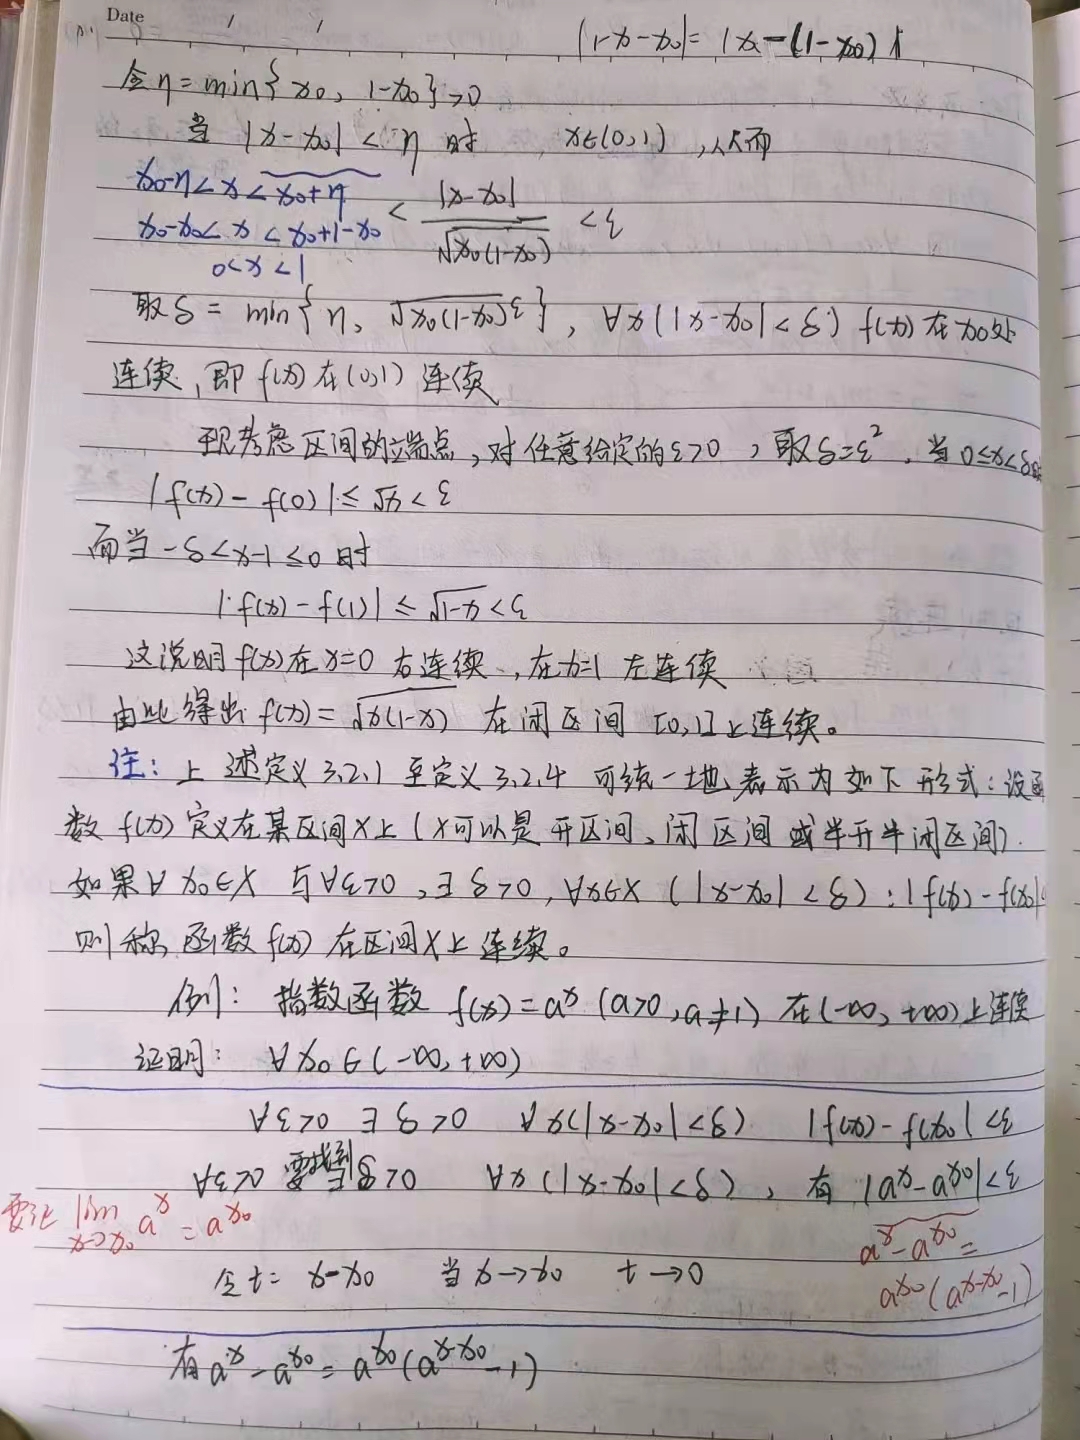 Date
|1-x-x₀|= |x-(1-x₀)|
令η=min{x₀, 1-x₀}>0
当 |x-x₀| < η 时 , x∈(0,1) ,从而
x₀-η<x<x₀+η < |x-x₀| / √x₀(1-x₀) < ε
x₀-x₀< x < x₀+1-x₀
0<x<1
取δ = min{η, √x₀(1-x₀) ε}, ∀x(|x-x₀|<δ) f(x)在x₀处
连续,即 f(x)在(0,1) 连续
现考虑区间的端点,对任意给定的ε>0 ,取δ=ε², 当0≤x<δ时
|f(x)-f(0)|≤√x<ε
而当 -δ<x-1≤0时
|f(x)-f(1)| ≤ √1-x<ε
这说明 f(x)在x=0 右连续 ,在x=1 左连续
由此得出 f(x)=√x(1-x) 在闭区间 [0,1]上连续。
注: 上述定义3.2.1 至定义3.2.4 可统一地表示为如下形式:设函
数 f(x) 定义在某区间X上 (X可以是开区间、闭区间或半开半闭区间).
如果∀ x₀∈X 与∀ε>0 ,∃ δ>0, ∀x∈X (|x-x₀|<δ) : |f(x)-f(x₀)|<
则称函数 f(x) 在区间X上连续。
例: 指数函数 f(x)=aˣ (a>0,a≠1) 在(-∞, +∞)上连续
证明: ∀x₀∈(-∞,+∞)
∀ε>0 ∃ δ>0 ∀x(|x-x₀|<δ) |f(x)-f(x₀)|<ε
∀ε>0 要找到δ>0 ∀x(|x-x₀|<δ), 有 |aˣ-aˣ⁰|<ε
要证 lim x→x₀ aˣ = aˣ⁰
aˣ-aˣ⁰=
aˣ⁰(aˣ⁻ˣ⁰-1)
令t= x-x₀ 当x→x₀ t→0
有aˣ-aˣ⁰= aˣ⁰(aˣ⁻ˣ⁰-1)